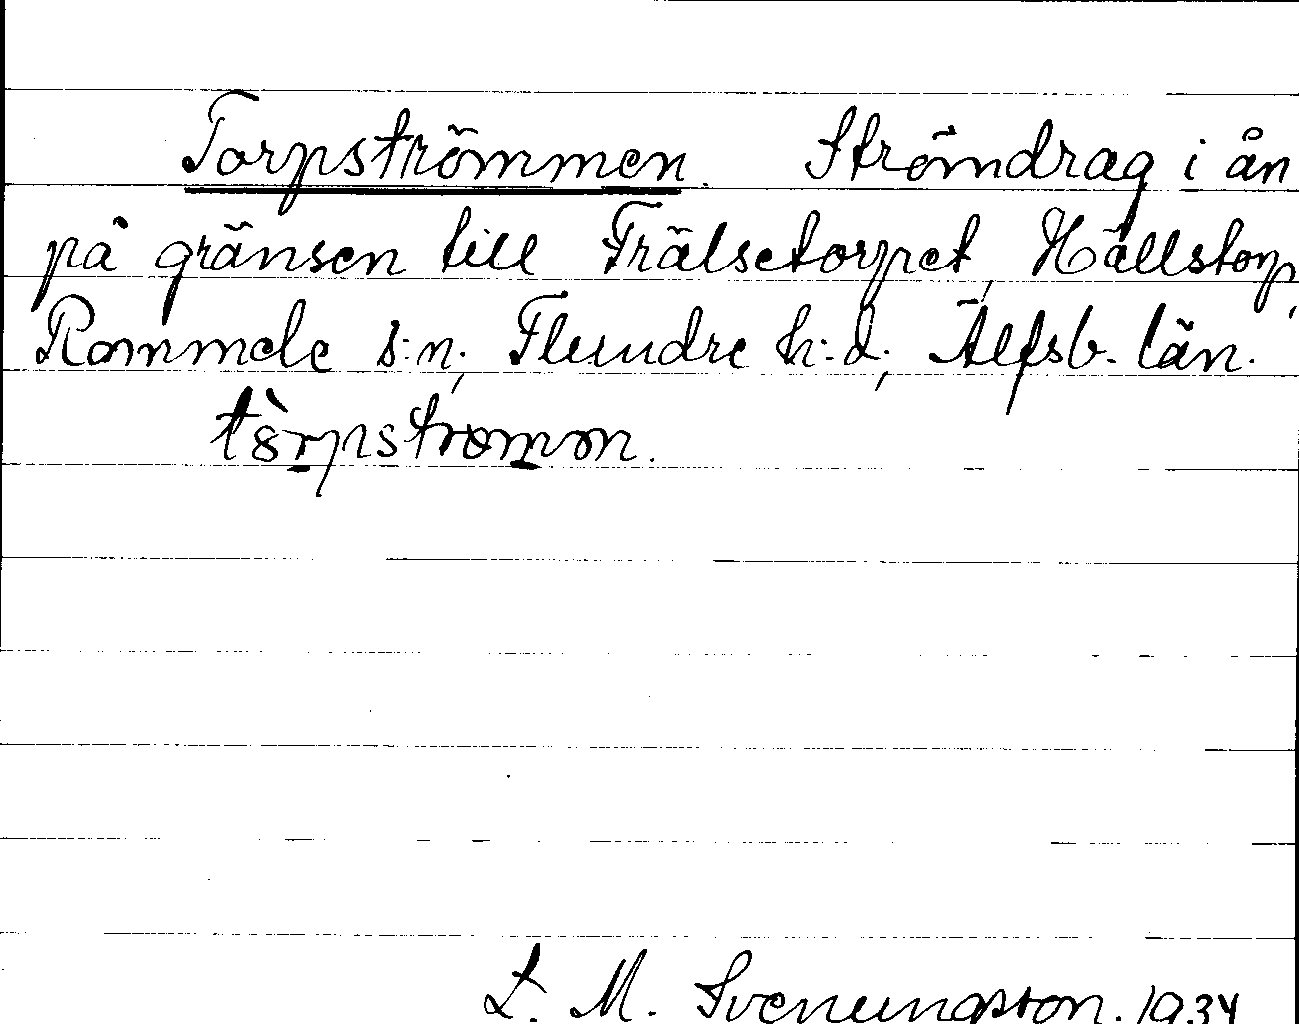 Torpströmmen. Strömdrag i ån
på gränsen till Frälsetorpet, Hällstorp,
Rommele s:n, Flundre h:d, Älfsb. län.
t8̀rpstromon.
L. M. Svenungsson. 1934